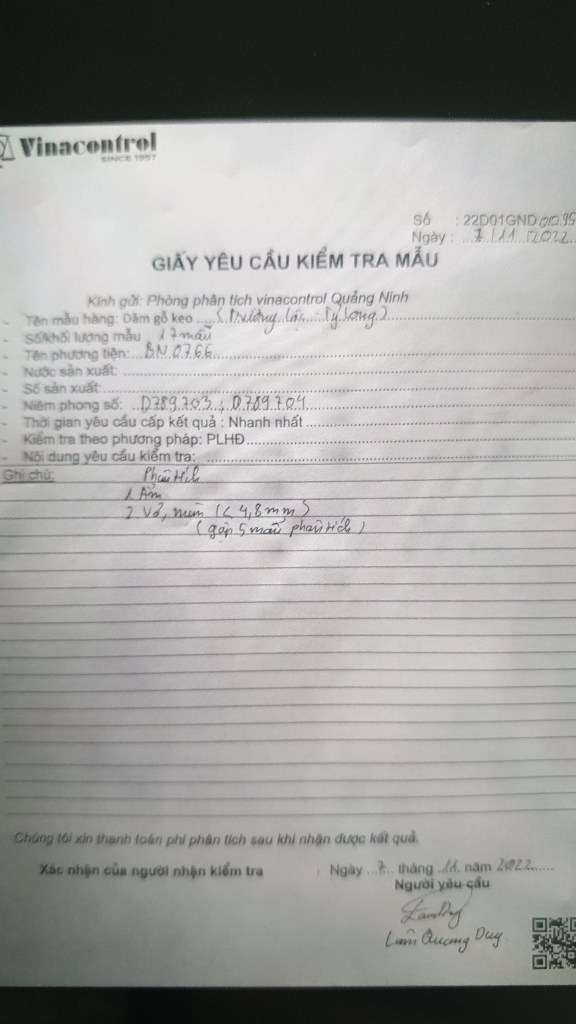 Vinacontrol
SINCE 1957
Số : 22D01GND0095
Ngày : 7/11/2022
GIẤY YÊU CẦU KIỂM TRA MẪU
Kính gửi: Phòng phân tích vinacontrol Quảng Ninh
- Tên mẫu hàng: Dăm gỗ keo (Trường Lộc - Ly Long)
- Số/khối lượng mẫu 17 mẫu
- Tên phương tiện: BN.0766
- Nước sản xuất:
- Số sản xuất:
- Niêm phong số: D789.703 ; D.789.704
- Thời gian yêu cầu cấp kết quả : Nhanh nhất
- Kiểm tra theo phương pháp: PLHĐ
- Nội dung yêu cầu kiểm tra:
Ghi chú: Phân tích
1. Ẩm
2 Vỏ, mùn (< 4,8mm)
(gộp 5 mẫu phân tích)
Chúng tôi xin thanh toán phí phân tích sau khi nhận được kết quả.
Xác nhận của người nhận kiểm tra
Ngày 7 tháng 11 năm 2022
Người yêu cầu
Lâm Quang Duy